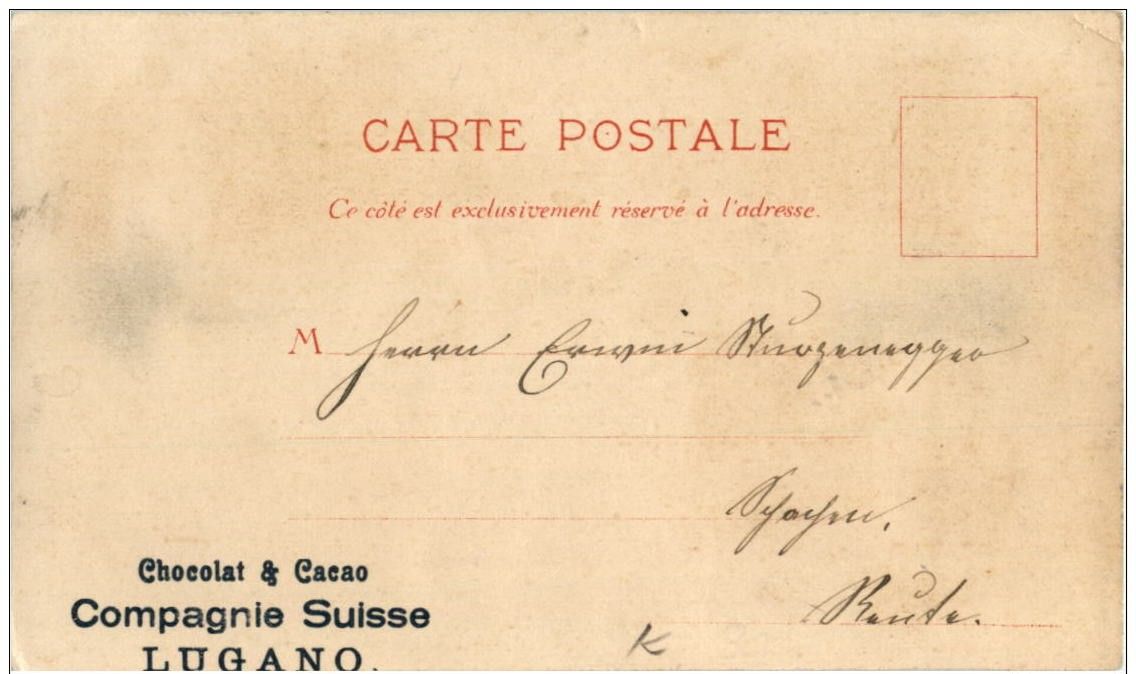 CARTE POSTALE
Ce côté est exclusivement réservé à l'adresse.
M Herrn Erwin Sturzenegger
Schachen.
Reute.
Chocolat & Cacao
Compagnie Suisse
LUGANO.
K